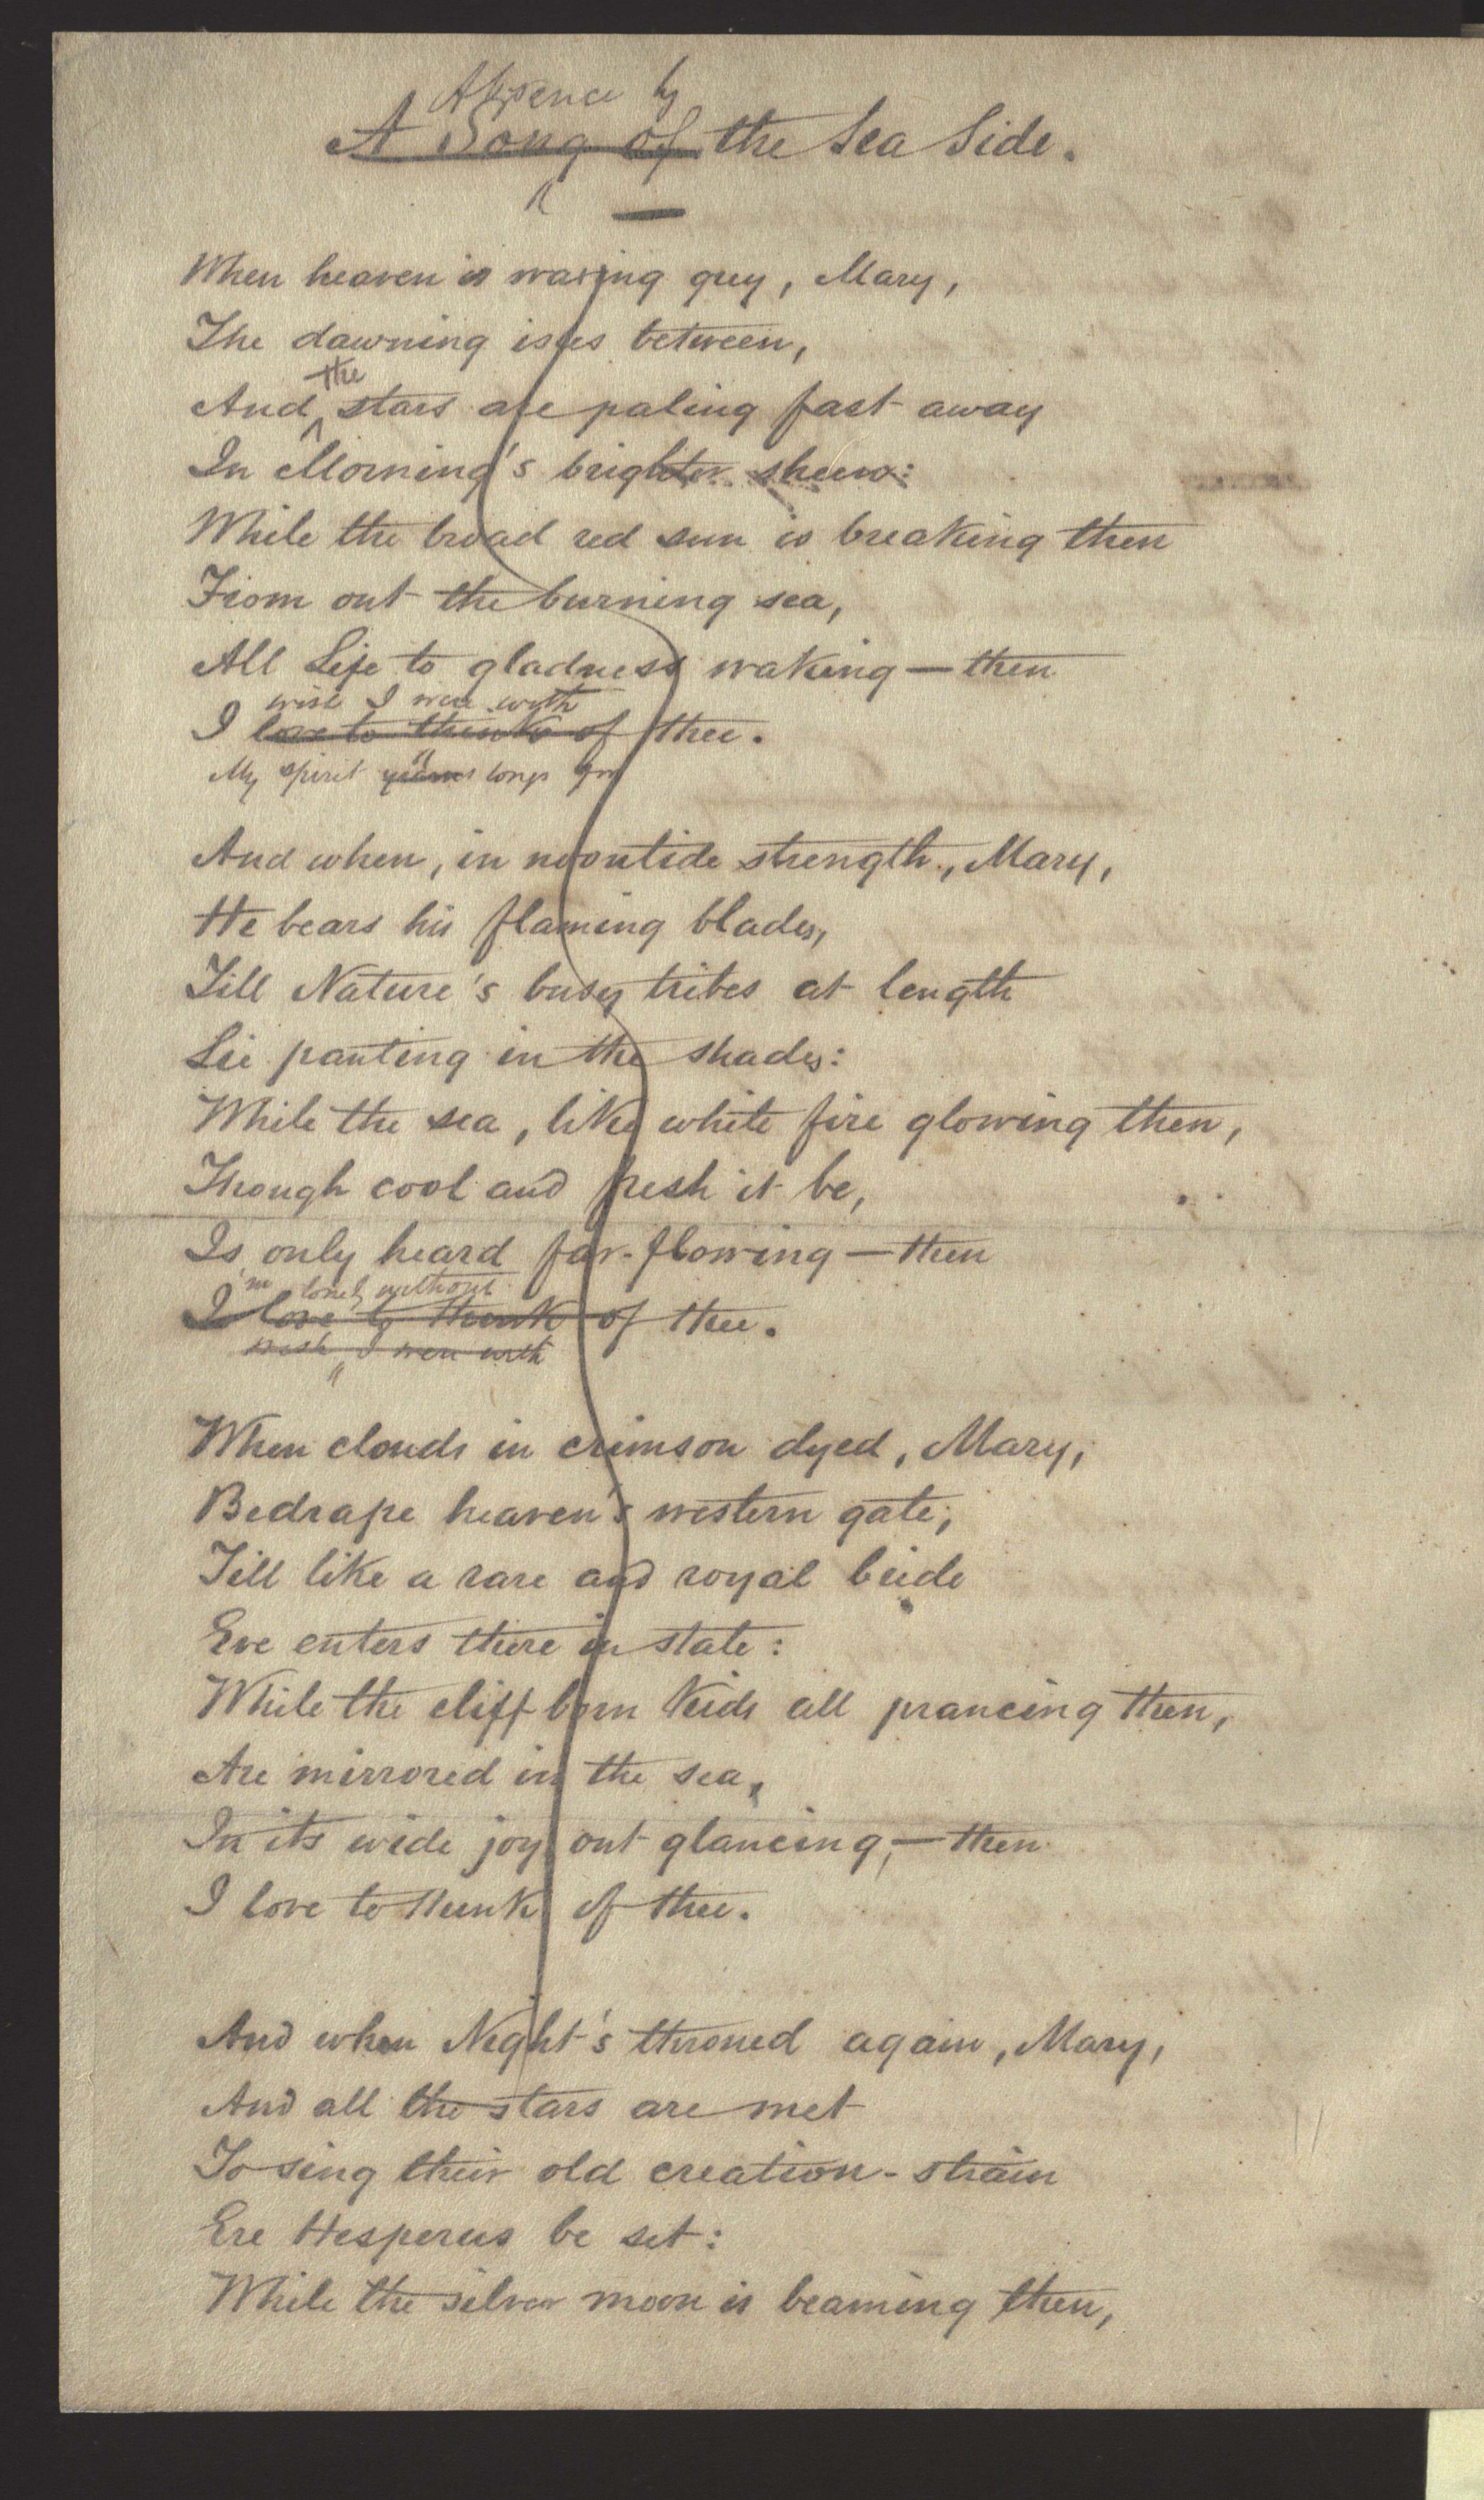 Absence by
A Song of the Sea Side.
When heaven is waxing grey, Mary,
The dawning isles between,
And the stars are paling fast away
In Morning's brighter sheen:
While the broad red sun is breaking then
From out the burning sea,
All Life to gladness waking — then
wish I were with
I love to think of thee.
My spirit yearns longs for
And when, in noontide strength, Mary,
He bears his flaming blades,
Till Nature's busy tribes at length
Lie panting in the shades:
While the sea, like white fire glowing then,
Though cool and fresh it be,
Is only heard far-flowing — then
'm lonely without
I love to think of thee.
wish I were with
When clouds in crimson dyed, Mary,
Bedrape heaven's western gate;
Till like a rare and royal bride
Eve enters there in state:
While the cliff born kids all prancing then,
Are mirrored in the sea,
In its wide joy out glancing, — then
I love to think of thee.
And when Night's throned again, Mary,
And all the stars are met
To sing their old creation-strain
Ere Hesperus be set:
While the silver moon is beaming then,